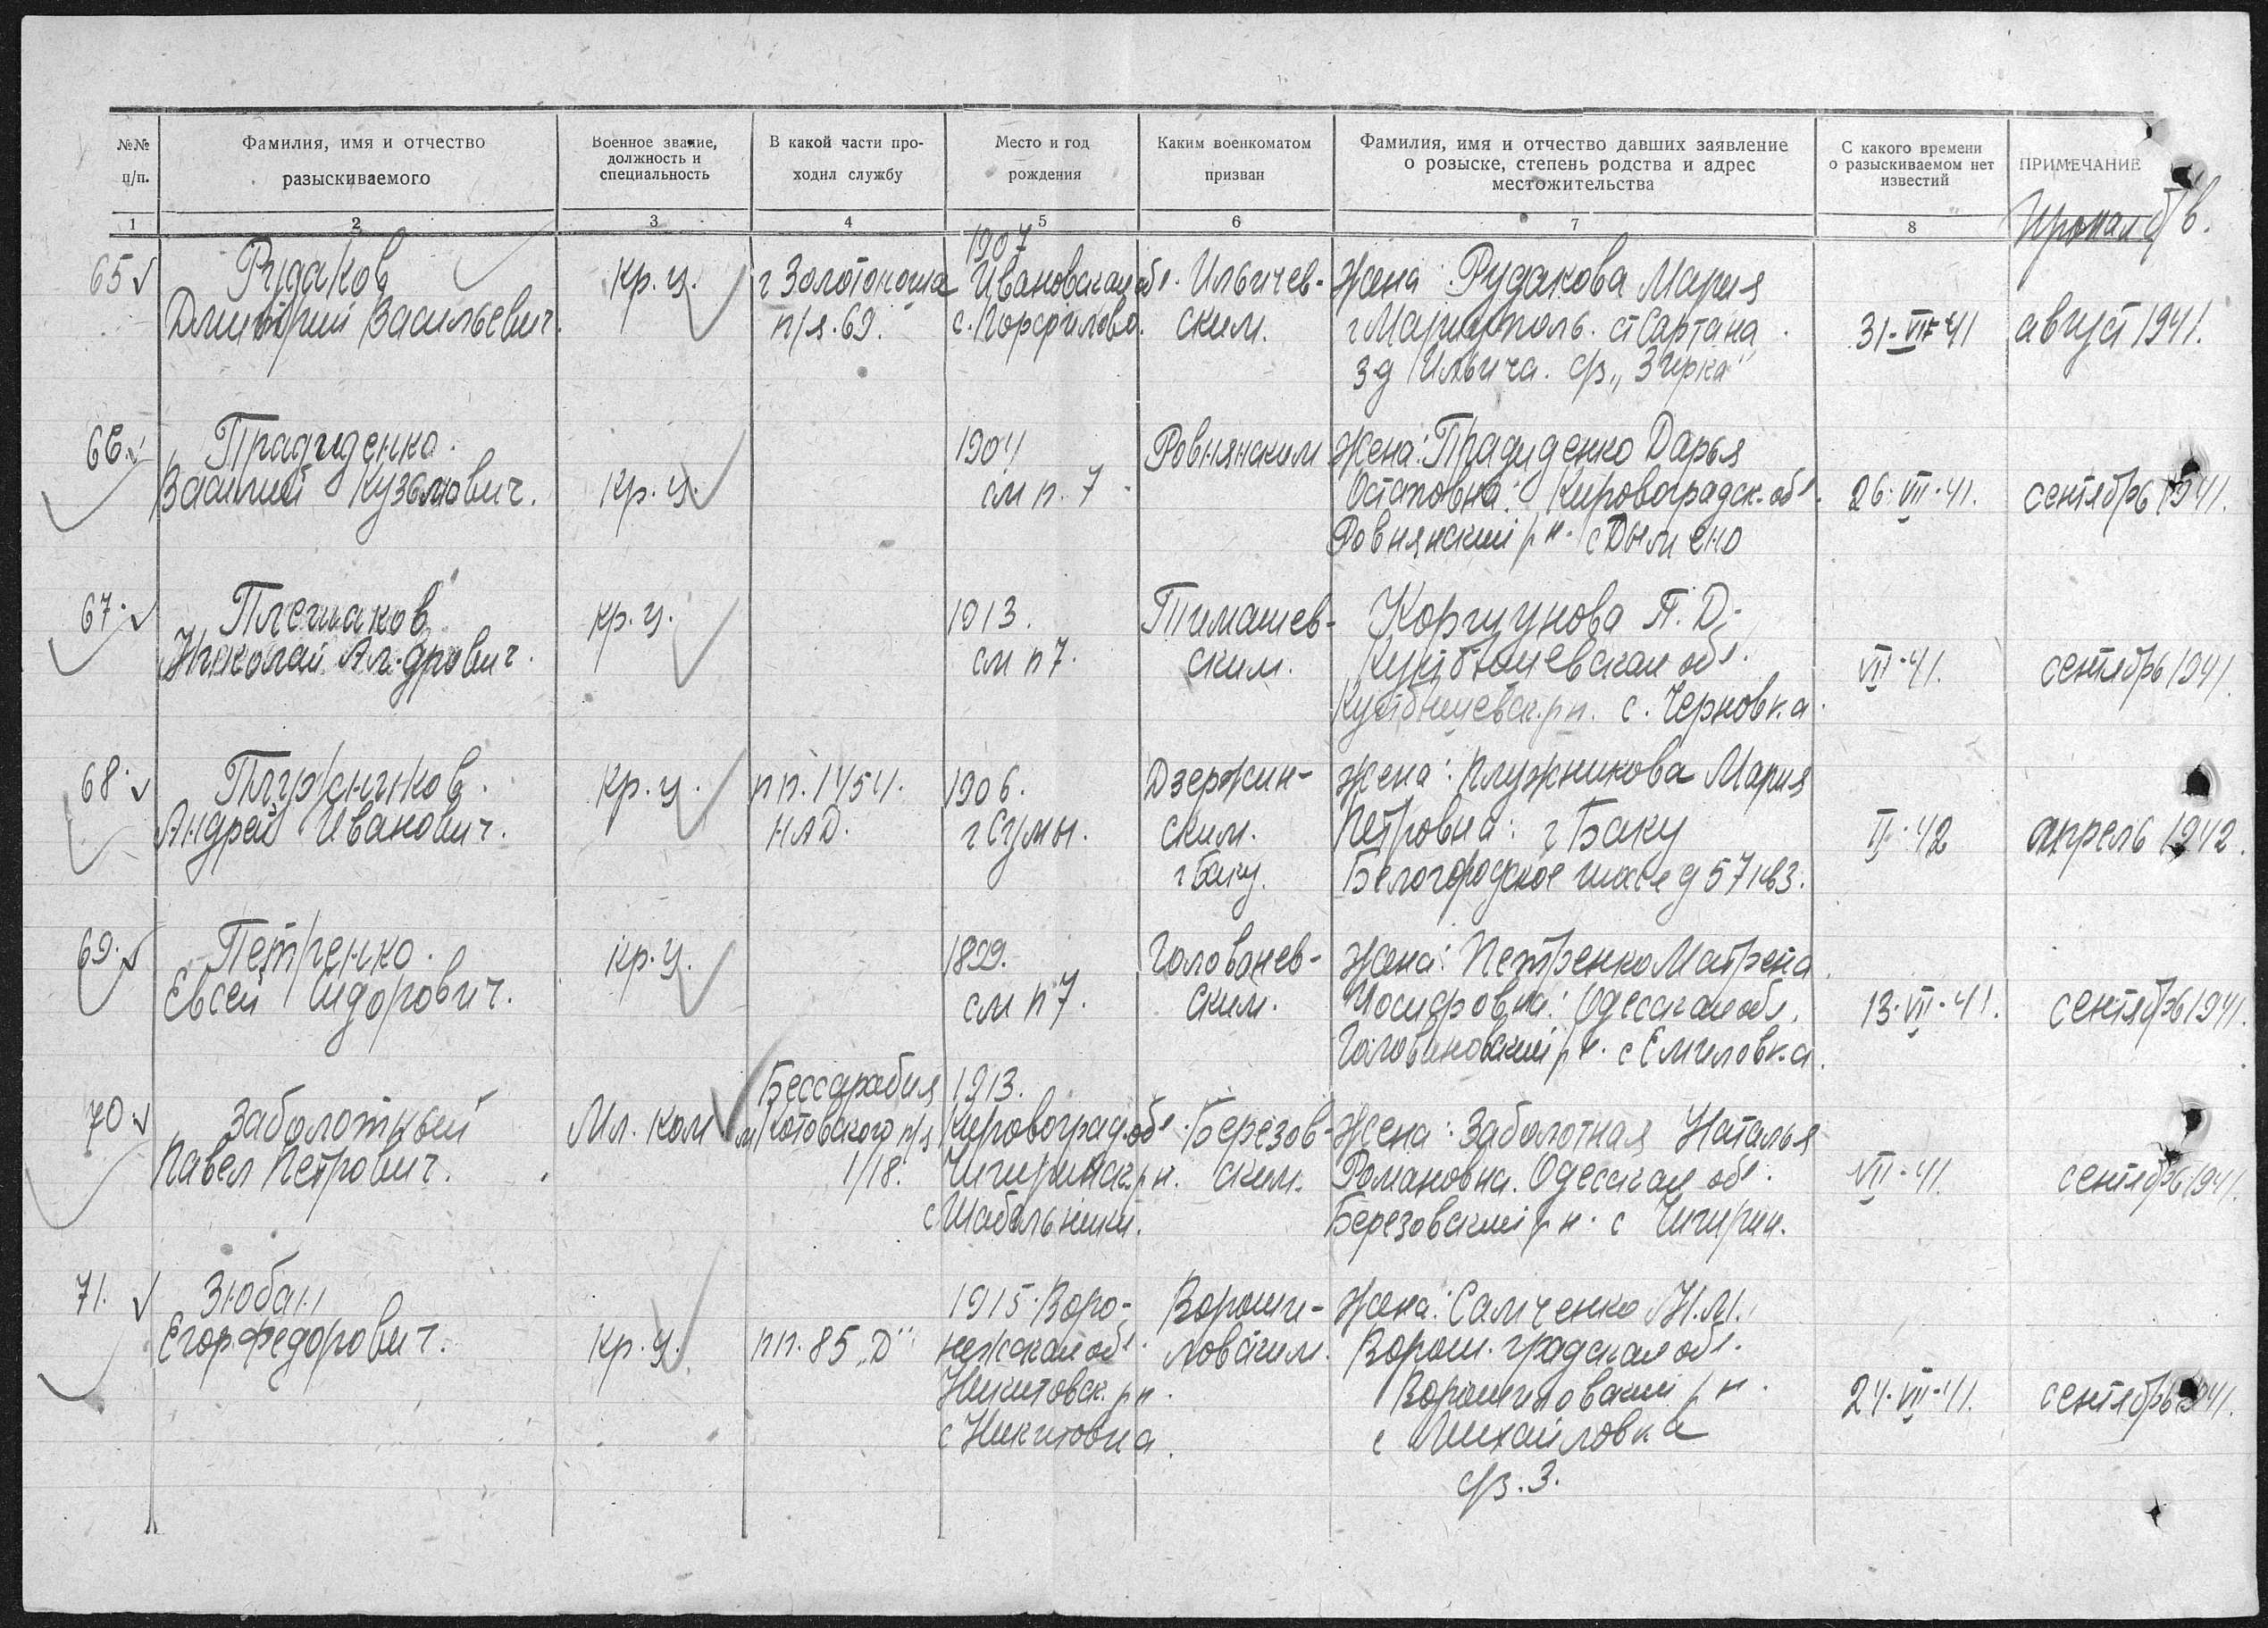 №№ п/п.
Фамилия, имя и отчество разыскиваемого
Военное звание, должность и специальность
В какой части проходил службу
Место и год рождения
Каким военкоматом призван
Фамилия, имя и отчество давших заявление о розыске, степень родства и адрес местожительства
С какого времени о разыскиваемом нет известий
ПРИМЕЧАНИЕ
1 2 3 4 5 6 7 8
Пропал б/в.
65
Рудаков
Дмитрий Васильевич.
кр-ц.
г Золотоноша
п/я. 69.
1907
Ивановская обл.
с. Порфилово.
Ильичев-
ским.
Жена: Рудакова Мария
г Мариуполь. ст Сартана
з-д Ильича. с/з „Зирка"
31-VII-41
август 1941.
66.
Прадиденко.
Василий Кузьмович.
кр-ц.
1904
см п. 7.
Ровнянским
Жена: Прадиденко Дарья
Остаповна: Кировоградск. обл.
Ровнянский р-н. с
26-VII-41.
сентябрь 1941.
67.
Плешаков
Николай Ал-дрович.
кр-ц.
1913.
см п 7.
Тимашев-
ским.
Коршунова П. Д.
Куйбышевская обл.
Куйбышевск. р-н. с. Черновка.
VII-41.
сентябрь 1941.
68.
Плужников.
Андрей Иванович.
кр-ц.
пп. 1454.
НАД.
1906.
г Сумы.
Дзержин-
ским.
г Баку.
Жена: Плужникова Мария
Петровна: г Баку
Белогородское шоссе д 57 кв 3.
II-42
апрель 1942.
69.
Петренко.
Евсей Сидорович.
кр-ц.
1899.
см п 7.
Голованев-
ским.
Жена: Петренко Матрена
Иосифовна: Одесская обл.
Головановский р-н. с Емиловка.
13-VII-41.
сентябрь 1941.
70.
Заболотный
Павел Петрович.
Мл. ком
Бессарабия
м Котовского п/я
1/18.
1913.
Кировоград. обл.
Чигиринск. р-н.
с Шабельники.
Березов-
ским.
Жена: Заболотная Наталья
Романовна. Одесская обл.
Березовский р-н. с Чигирин.
VII-41.
сентябрь 1941.
71.
Зюбан
Егор Федорович.
кр-ц.
пп. 85 „Д"
1915. Воро-
нежская обл.
Никитовск. р-н.
с Никитовка.
Вороши-
ловским.
Жена: Самченко Н. М.
Ворош. градская обл.
Ворошиловский р-н.
с Михайловка
с/з. 3.
24-VII-41.
сентябрь 1941.